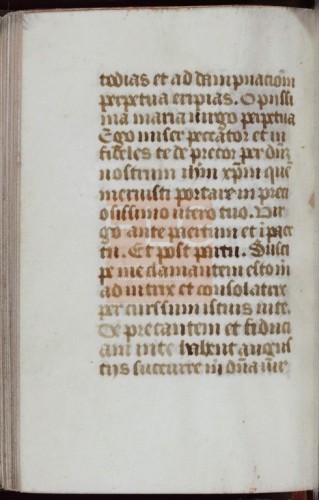 todias et ad dampnacioni
perpetua eripias. O pussi
ma maria uirgo perpetua
Ego miser peccator et in
fideles te de precor per dnm
nostrum ihm xpm que
meruisti portare in preci
osissimo utero tuo. Vir
go ante partum et i par
tu. Et post partu. Susci
pe me clamantem esto m
adiutrix et consolatrix
per curssum istius uite.
De precantem et fiduci
am in te habent angus
tijs succurre m dna